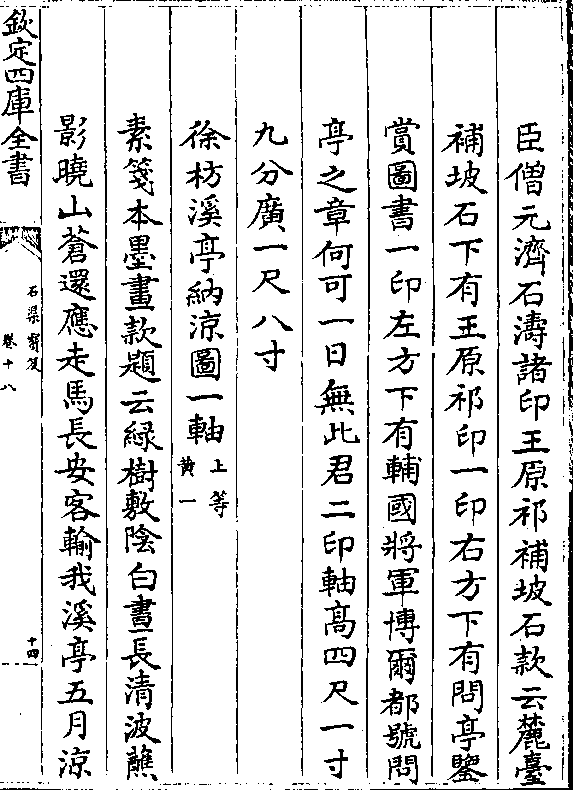 臣僧元濟石濤諸印王原祁補坡石款云麓臺
補坡石下有王原祁印一印右方下有問亭鑒
賞圖書一印左方下有輔國將軍博爾都號問
亭之章何可一日無此君二印軸高四尺一寸
九分廣一尺八寸
徐枋溪亭納涼圖一軸上等黄一
素箋本墨畫款題云緑樹敷陰白晝長清波蘸
影曉山蒼還應走馬長安客輸我溪亭五月涼
欽定四庫全書
石渠寶笈
卷十八
十四